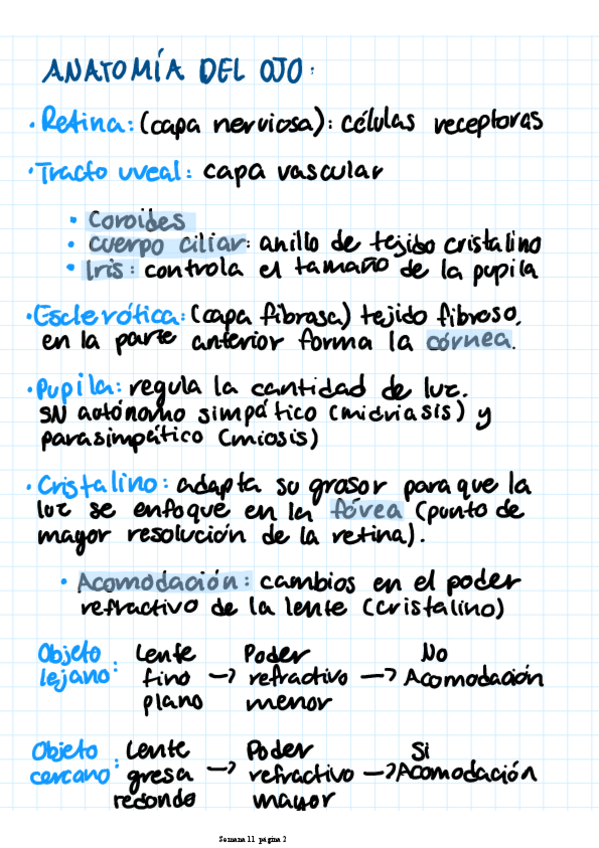 ANATOMÍA DEL OJO:
• Retina: (capa nerviosa): células receptoras
• Tracto uveal: capa vascular
• Coroides
• cuerpo ciliar: anillo de tejido cristalino
• Iris: controla el tamaño de la pupila
• Esclerótica: (capa fibrosa) tejido fibroso,
en la parte anterior forma la córnea.
• Pupila: regula la cantidad de luz.
SN autónomo simpático (midriasis) y
parasimpático (miosis)
• Cristalino: adapta su grosor para que la
luz se enfoque en la fóvea (punto de
mayor resolución de la retina).
• Acomodación: cambios en el poder
refractivo de la lente (cristalino)
Objeto lejano: Lente fino plano → Poder refractivo menor → No Acomodación
Objeto cercano: Lente gresa redondo → Poder refractivo mayor → Si Acomodación
Semana 11 página 2